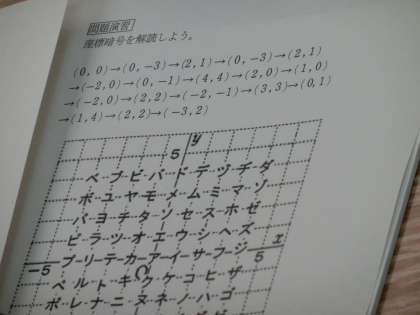 問題演習
座標暗号を解読しよう。
(0, 0)→(0, −3)→(2, 1)→(0, −3)→(2, 1)
→(−2, 0)→(0, −1)→(4, 4)→(2, 0)→(1, 0)
→(−2, 0)→(2, 2)→(−2, −1)→(3, 3)→(0, 1)
→(1, 4)→(2, 2)→(−3, 2)
5 y
ベ ブ ビ バ ド デ ヅ ヂ ダ
ボ ユ ヤ モ メ ム ミ マ ゾ
パ ヨ チ タ ソ セ ス ホ ゼ
ピ ラ ツ オ エ ウ シ ヘ ズ
−5 プ リ テ カ ア イ サ フ ジ 5 x
ペ ル ト キ ク ケ コ ヒ ザ
ポ レ ナ ニ ヌ ネ ノ ハ ゴ